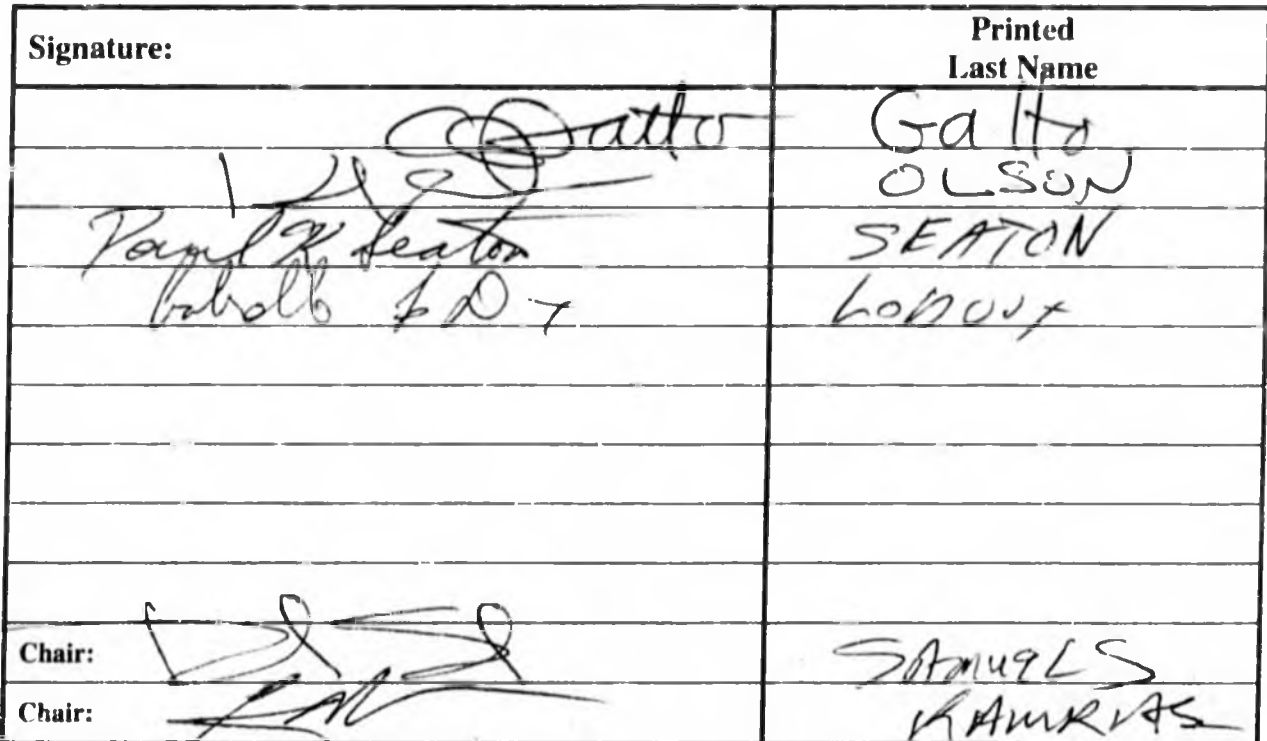 Signature: Printed Last Name
Gatto Gatto
OLSON
Paul K Seaton SEATON
Chair: SAMUELS
Chair: